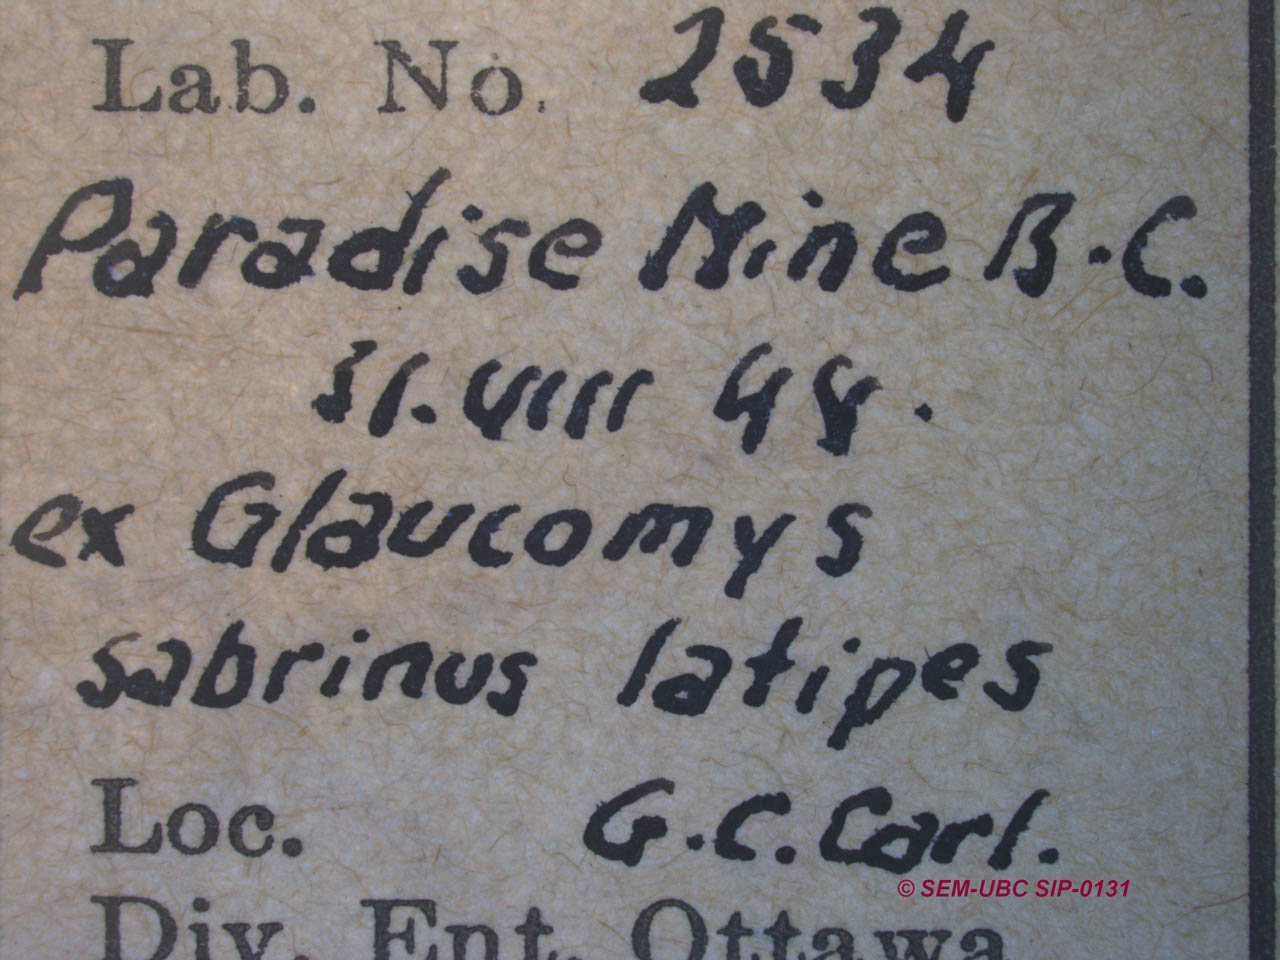 Lab. No. 2534
Paradise Mine B.C.
31.VIII 48.
ex Glaucomys
sabrinus latipes
Loc. G.C.Carl.
© SEM-UBC SIP-0131
Div. Ent. Ottawa